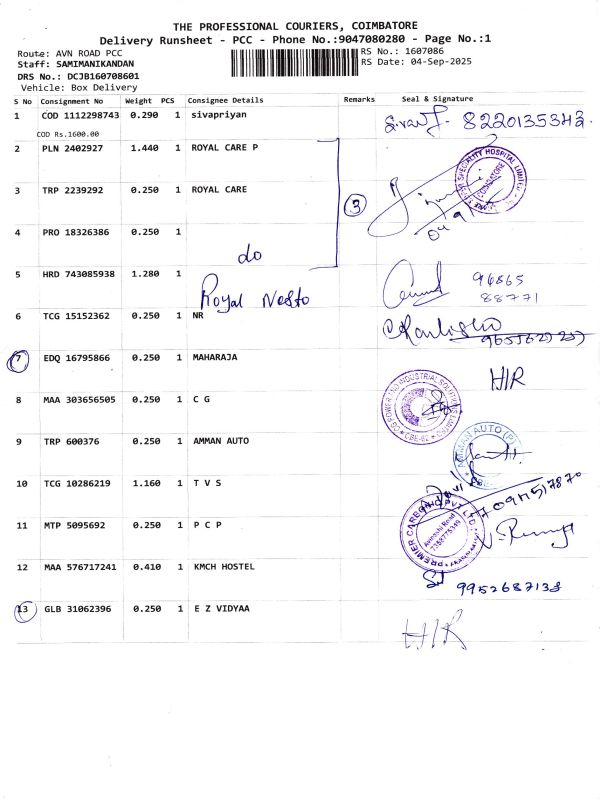 THE PROFESSIONAL COURIERS, COIMBATORE
Delivery Runsheet - PCC - Phone No.:9047080280 - Page No.:1
Route: AVN ROAD PCC
RS No.: 1607086
Staff: SAMIMANIKANDAN
RS Date: 04-Sep-2025
DRS No.: DCJB160708601
Vehicle: Box Delivery
S No Consignment No Weight PCS Consignee Details Remarks Seal & Signature
1 COD 1112298743 0.290 1 sivapriyan 8220135343
COD Rs.1600.00
2 PLN 2402927 1.440 1 ROYAL CARE P
3 TRP 2239292 0.250 1 ROYAL CARE 3
4 PRO 18326386 0.250 1 do
5 HRD 743085938 1.280 1 Royal Nesto 96865 88771
6 TCG 15152362 0.250 1 NR
7 EDQ 16795866 0.250 1 MAHARAJA HIR
8 MAA 303656505 0.250 1 C G
CG POWER AND INDUSTRIAL SOLUTIONS LIMITED
9 TRP 600376 0.250 1 AMMAN AUTO
AMMAN AUTO (P)
10 TCG 10286219 1.160 1 T V S
11 MTP 5095692 0.250 1 P C P
PREMIER CARBONIC PVT LTD
Avinashi Road
12 MAA 576717241 0.410 1 KMCH HOSTEL 9952687138
13 GLB 31062396 0.250 1 E Z VIDYAA HIR